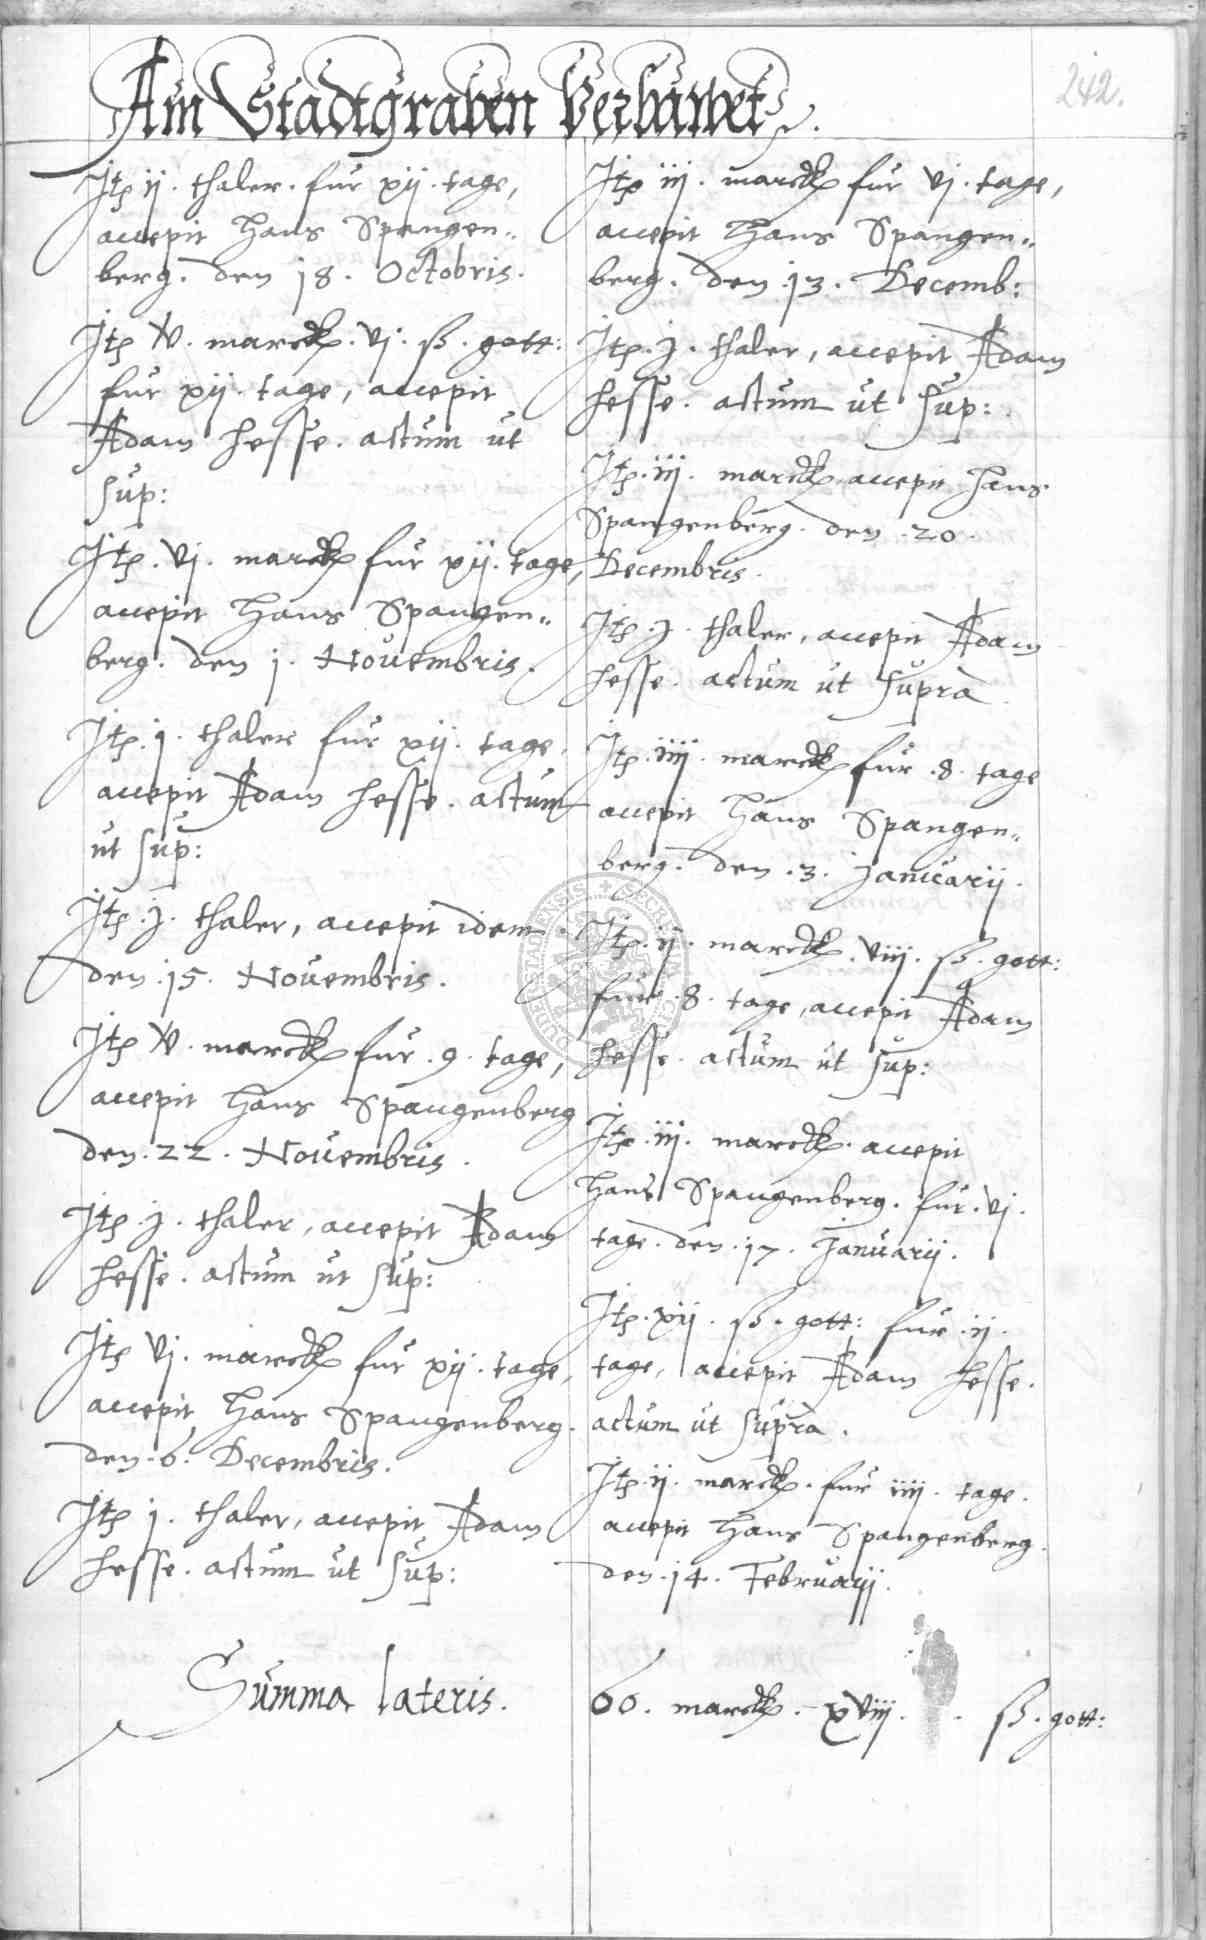 Am Stadtgraben Verbauwet.
242.
Itp ij. thaler. fur xij. tage,
accepit Hans Spangen„
berg. den 18. Octobris.
Itp V. marck. vj. ß. gott:
fur xij. tage, accepit
Adam Hesse. actum ut
sup:
Itp. vj. marck fur xij. tage,
accepit Hans Spangen„
berg. den j. Novembris.
Itp. j. thaler fur xij. tage.
accepit Adam Hesse. actum
ut sup:
Itp. j. thaler, accepit idem
den .15. Novembris.
Itp V. marck fur .9. tage,
accepit Hans Spangenberg
den .22. Novembris.
Itp. j. thaler, accepit Adam
Hesse. actum ut sup:
Itp vj. marck fur xij. tage,
accepit Hans Spangenberg.
den .6. Decembris.
Itp j. thaler, accepit Adam
Hesse. actum ut sup:
Itp iij. marck fur vj. tage,
accepit Hans Spangen„
berg. den 13. Decemb:
Itp. j. thaler, accepit Adam
Hesse. actum ut sup:
Itp. iij. marck accepit Hans
Spangenberg. den .20.
Decembris.
Itp. j. thaler, accepit Adam
Hesse. actum ut supra.
Itp. iiij. marck fur .8. tage
accepit Hans Spangen„
berg. den .3. Januarij.
Itp. ij. marck. viij. ß. gott:
fur .8. tage, accepit Adam
Hesse. actum ut sup:
Itp. iij. marck. accepit
Hans Spangenberg. fur. vj.
tage. den .17. Januarij.
Itp. xij. ß. gott: fur .ij.
tage, accepit Adam Hesse.
actum ut supra.
Itp. ij. marck. fur iiij. tage.
accepit Hans Spangenberg.
den .14. Februarij.
Summa lateris. 60. marck. xviij. ß. gott: